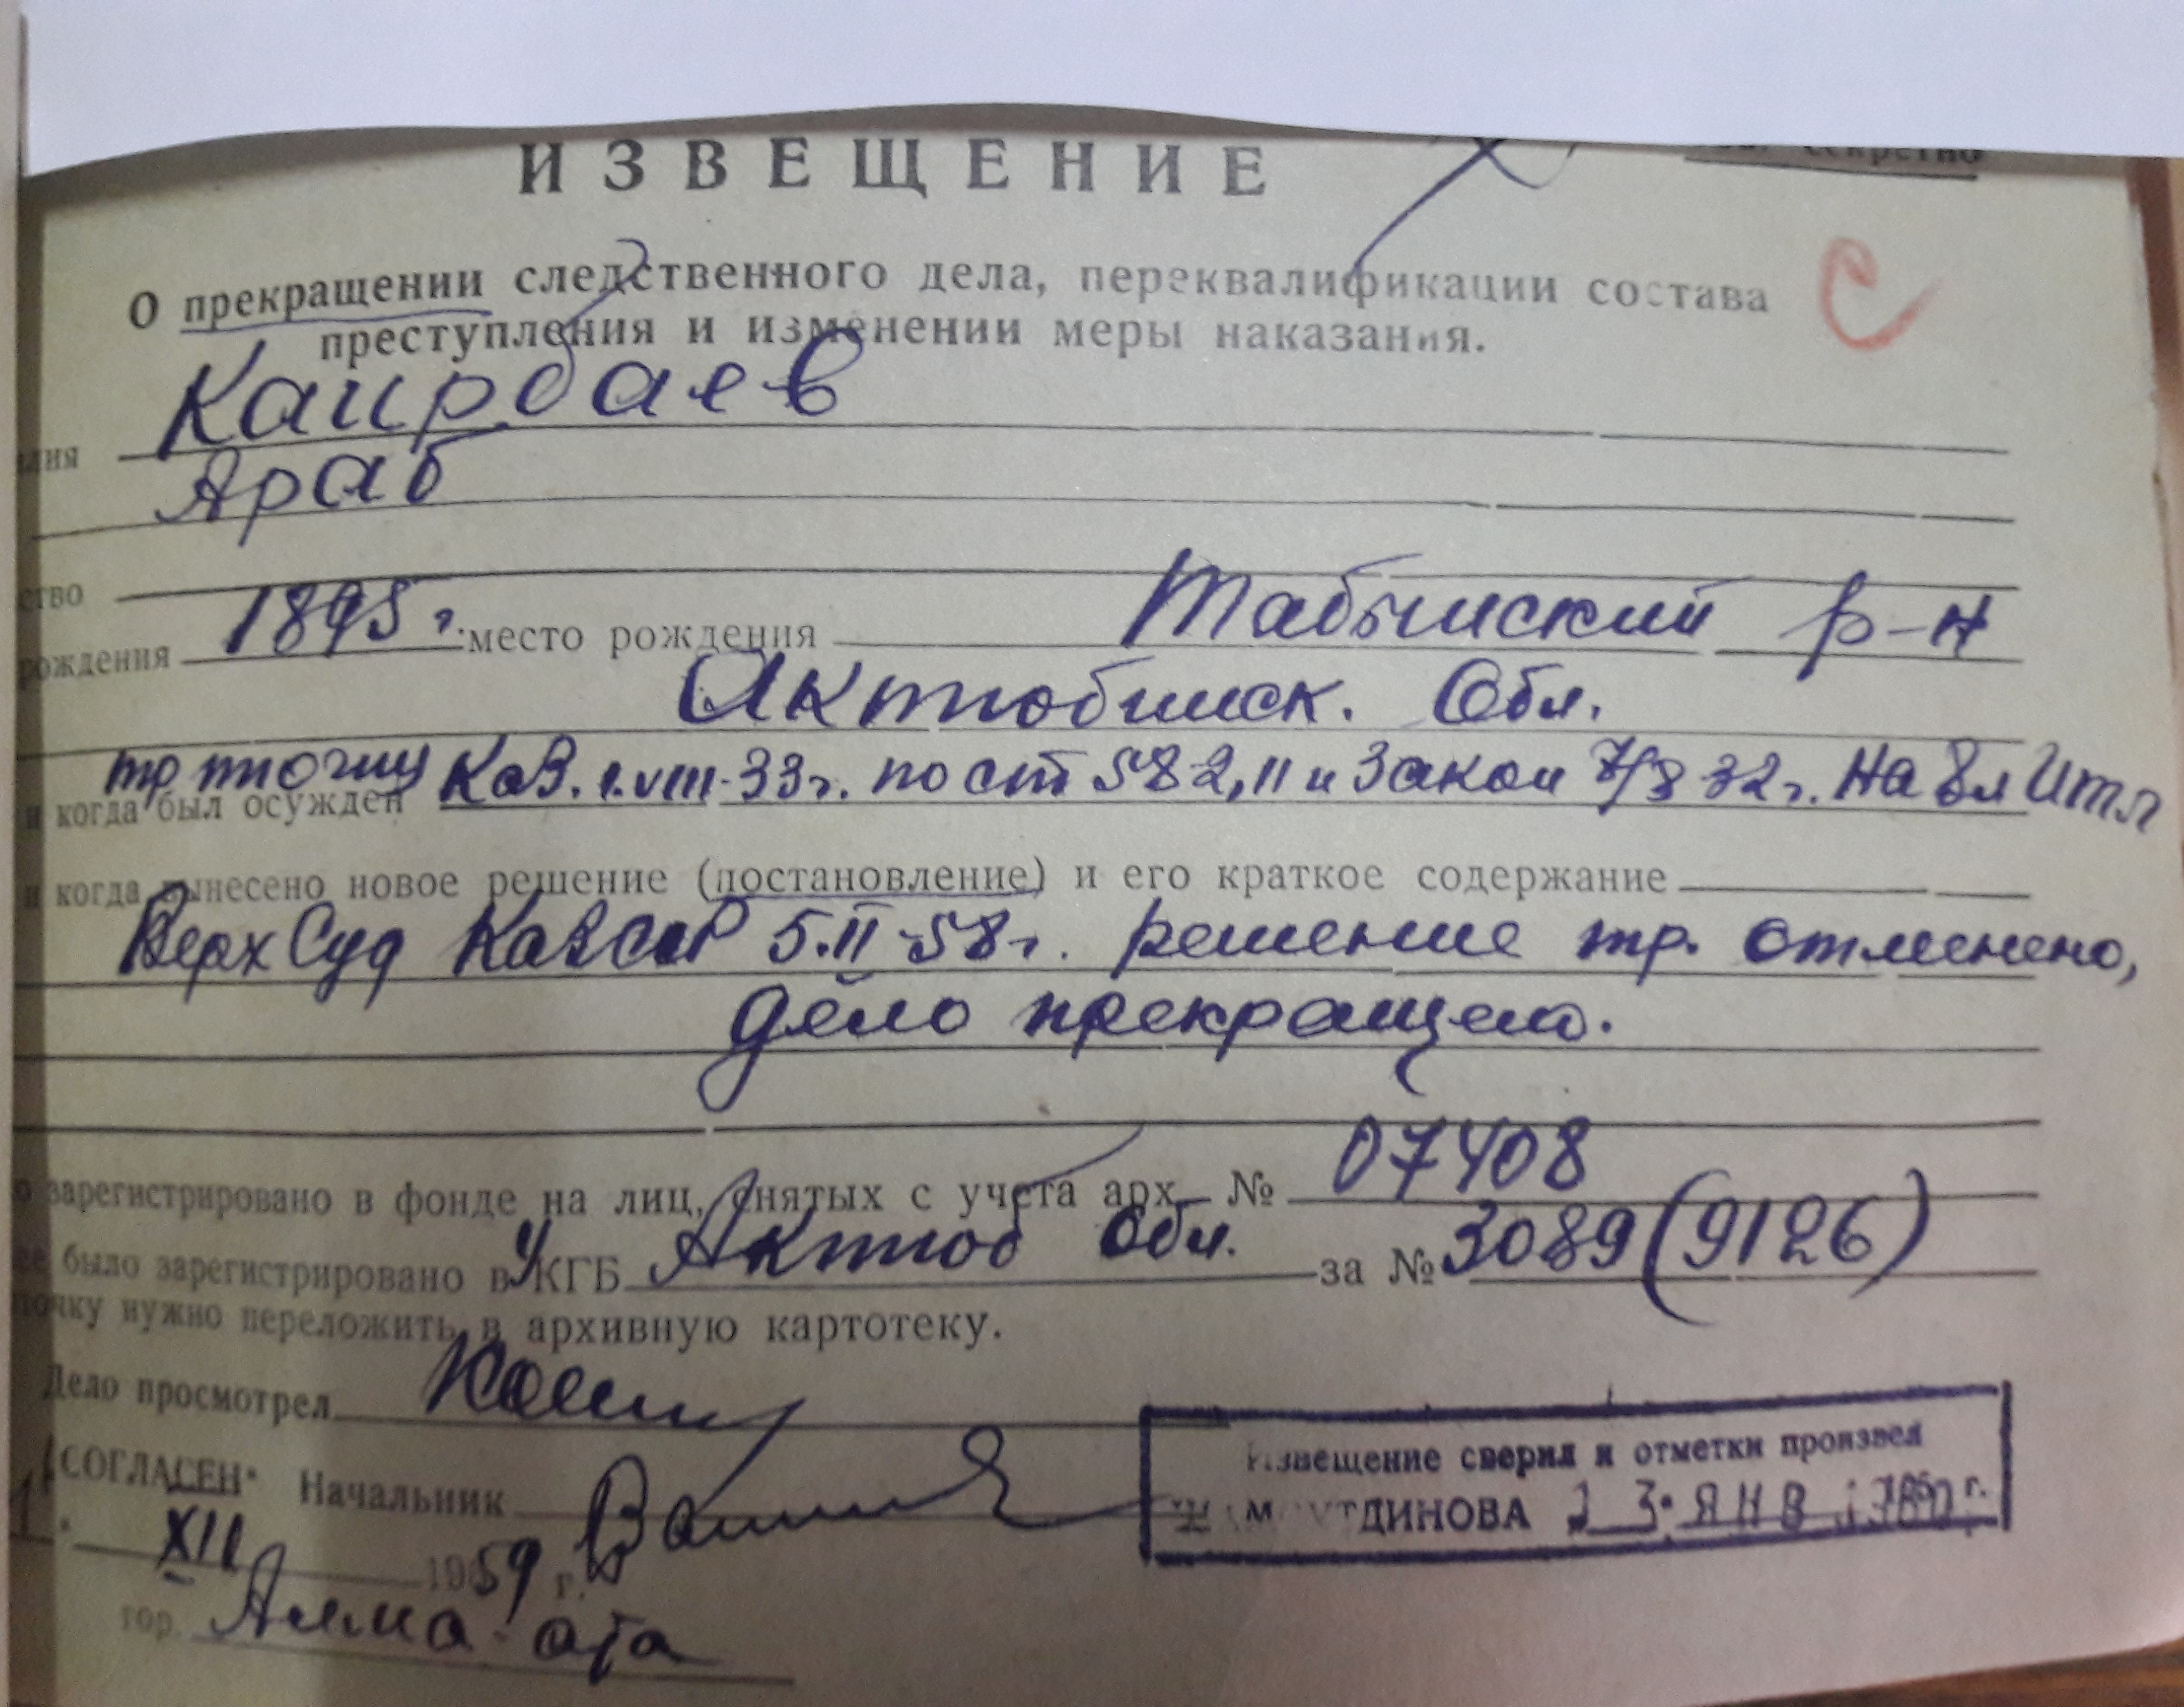 секретно
ИЗВЕЩЕНИЕ
С
О прекращении следственного дела, переквалификации состава
преступления и изменении меры наказания.
Каирбаев
Араб
рождения 1895 г. место рождения Табынский р-н
Актюбинск. Обл.
тр ПП ОГПУ Каз. 1.VIII-33г. по ст 58-2, 11 и Закон 7/8 32г. на 8 л ИТЛ
и когда был осужден
и когда вынесено новое решение (постановление) и его краткое содержание
Верх Суд КазССР 5.II-58г. решение тр. отменено,
дело прекращено.
зарегистрировано в фонде на лиц, снятых с учета арх. № 07408
было зарегистрировано в УКГБ Актюб Обл. за № 3089 (9126)
нужно переложить в архивную картотеку.
Дело просмотрел
„СОГЛАСЕН" Начальник
XII 1959 г.
гор. Алма-ата
Извещение сверил и отметки произвел
23 ЯНВ